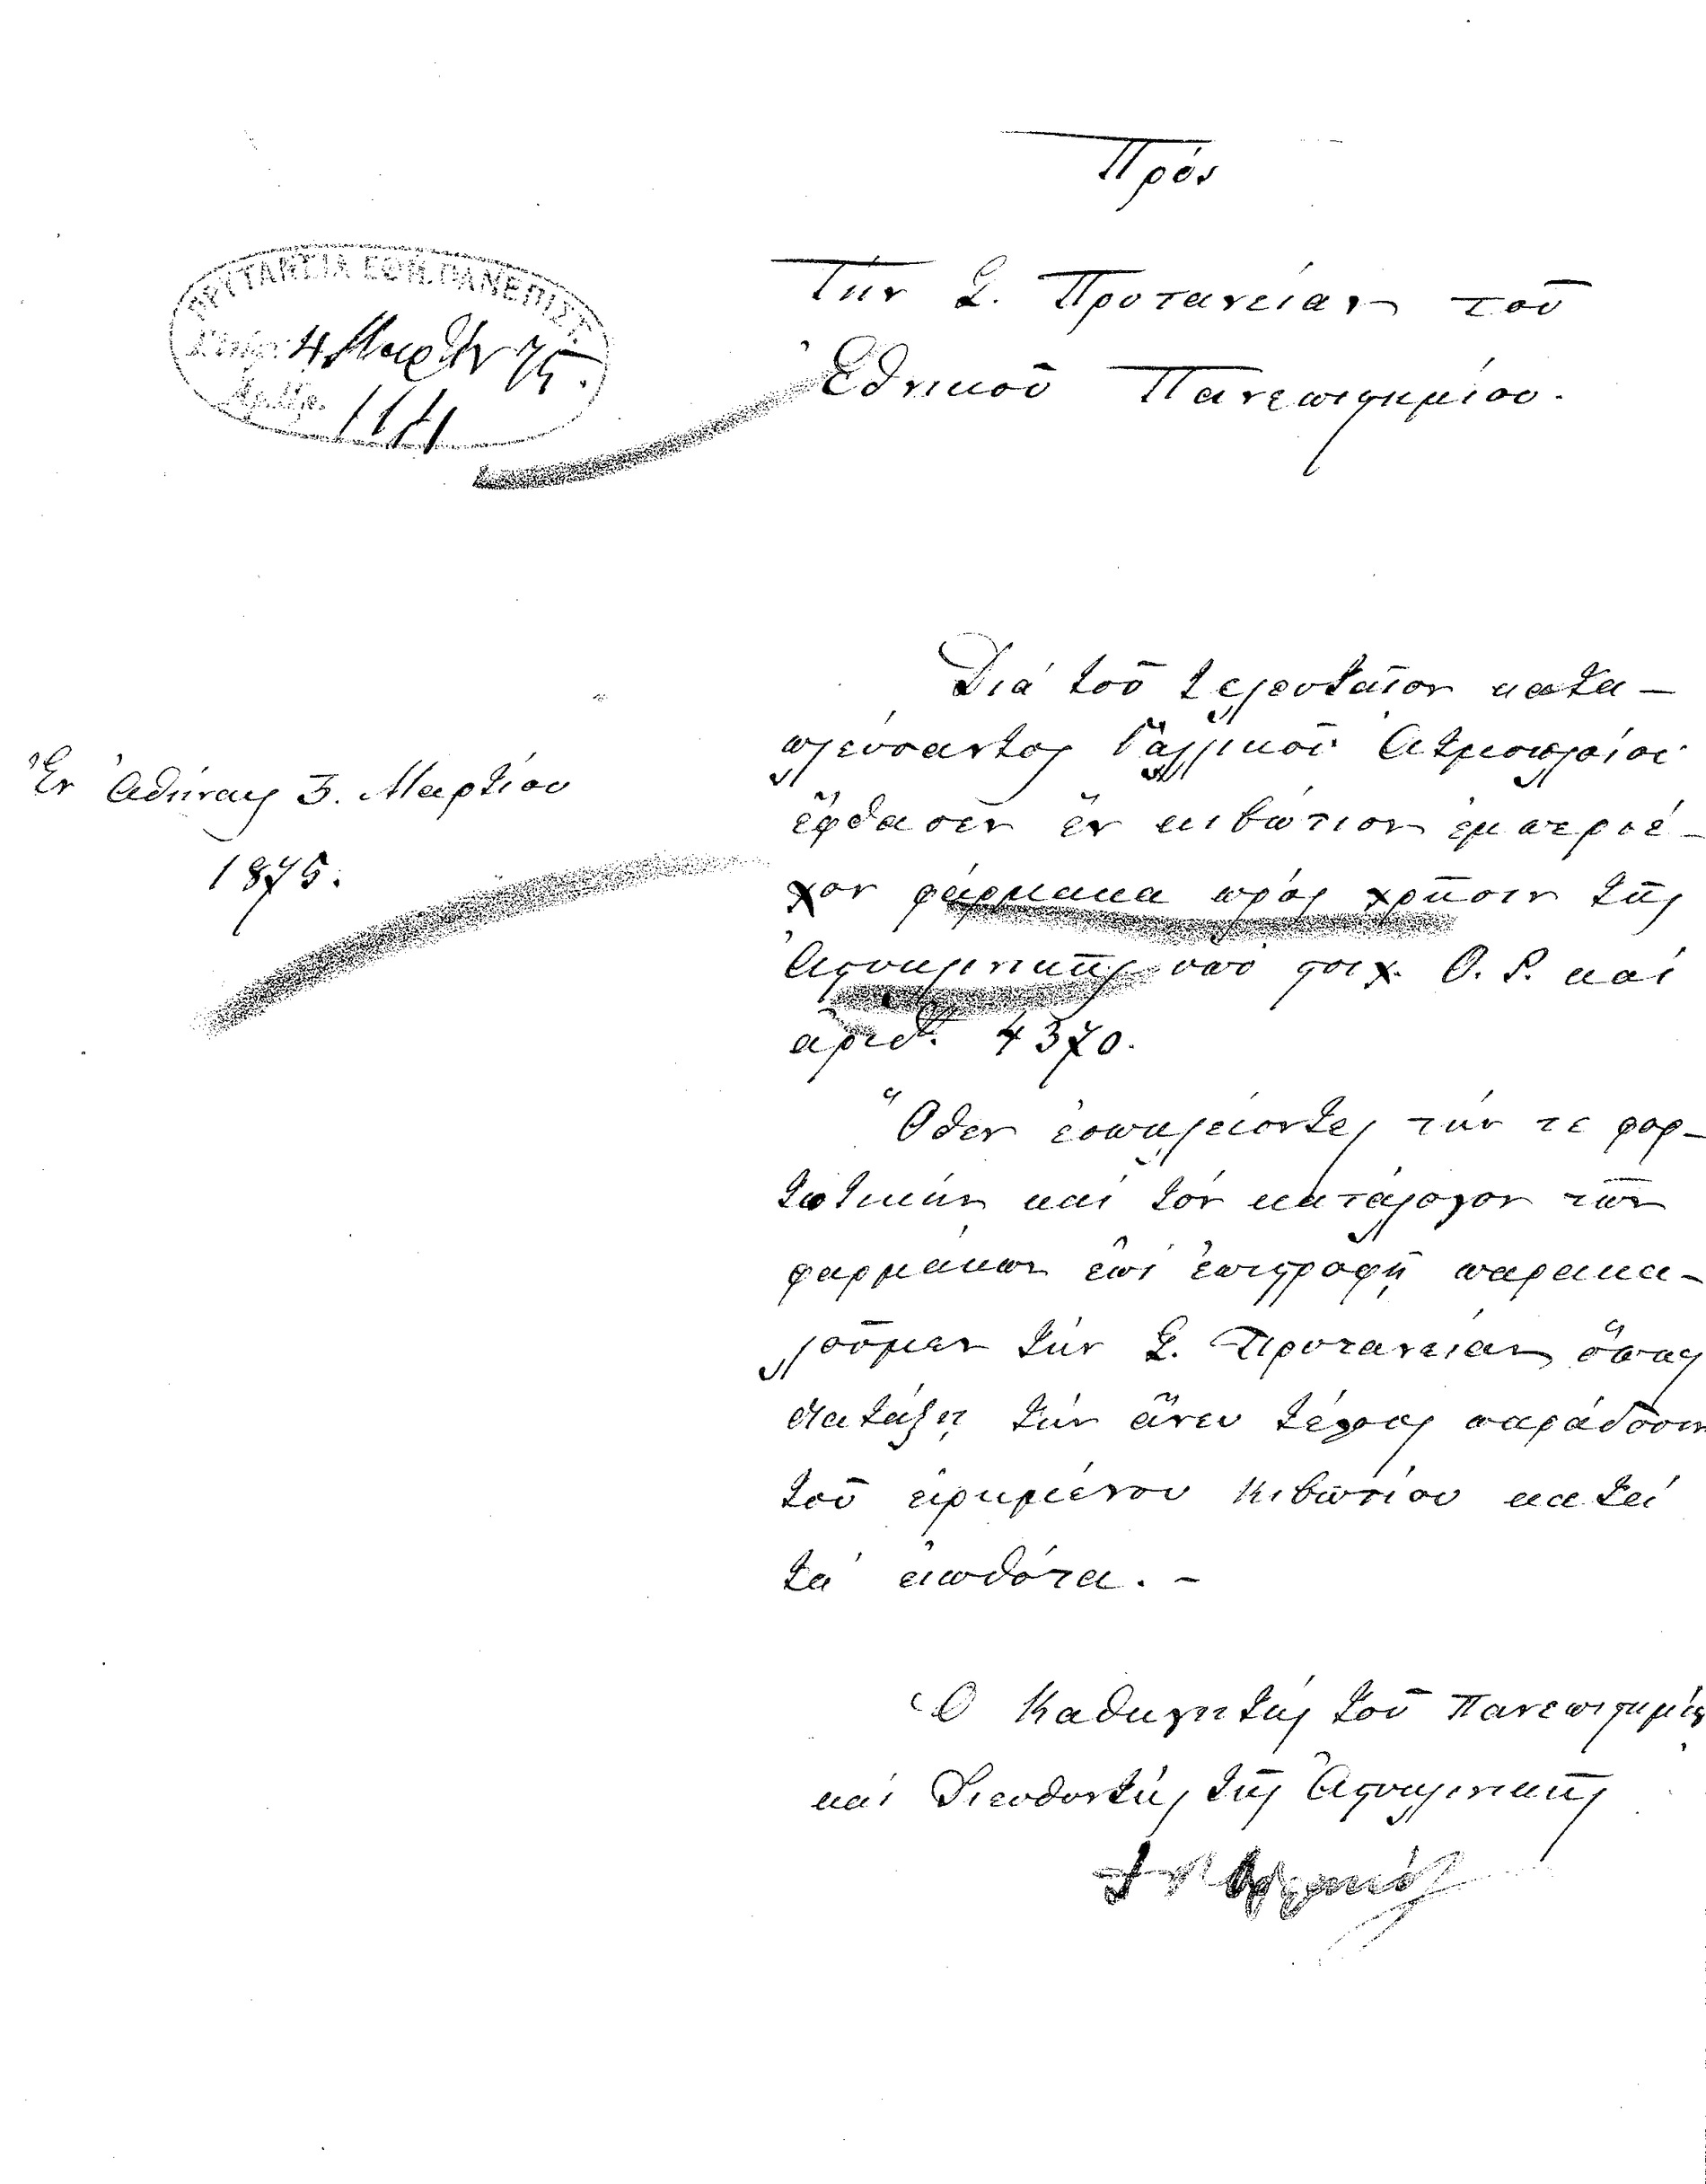 Πρός
Τὴν Σ. Πρυτανείαν τοῦ
Ἐθνικοῦ Πανεπιστημίου.
ΠΡΥΤΑΝΕΙΑ ΕΘΝ. ΠΑΝΕΠΙΣΤ.
4 Μαρτίου 75.
Ἐν Ἀθήναις 3. Μαρτίου
1875.
Διὰ τοῦ τελευταῖον κατα–
πλεύσαντος Γαλλικοῦ Ἀτμοπλοίου
ἔφθασεν ἓν κιβώτιον ἐμπεριέ–
χον φάρμακα πρὸς χρῆσιν τῆς
Ἀστυκλινικῆς ὑπὸ στοιχ. Ο. Ρ. καὶ
ἀριθ. 4370.
Ὅθεν ἐσωκλείοντες τήν τε φορ–
τωτικὴν καὶ τὸν κατάλογον τῶν
φαρμάκων ἐπὶ ἐπιστροφῇ παρακα–
λοῦμεν τὴν Σ. Πρυτανείαν ὅπως
διατάξῃ τὴν ἄνευ τέλους παράδοσιν
τοῦ εἰρημένου κιβωτίου κατὰ
τὰ εἰωθότα. –
Ὁ Καθηγητὴς τοῦ Πανεπιστημίου
καὶ Διευθυντὴς τῆς Ἀστυκλινικῆς